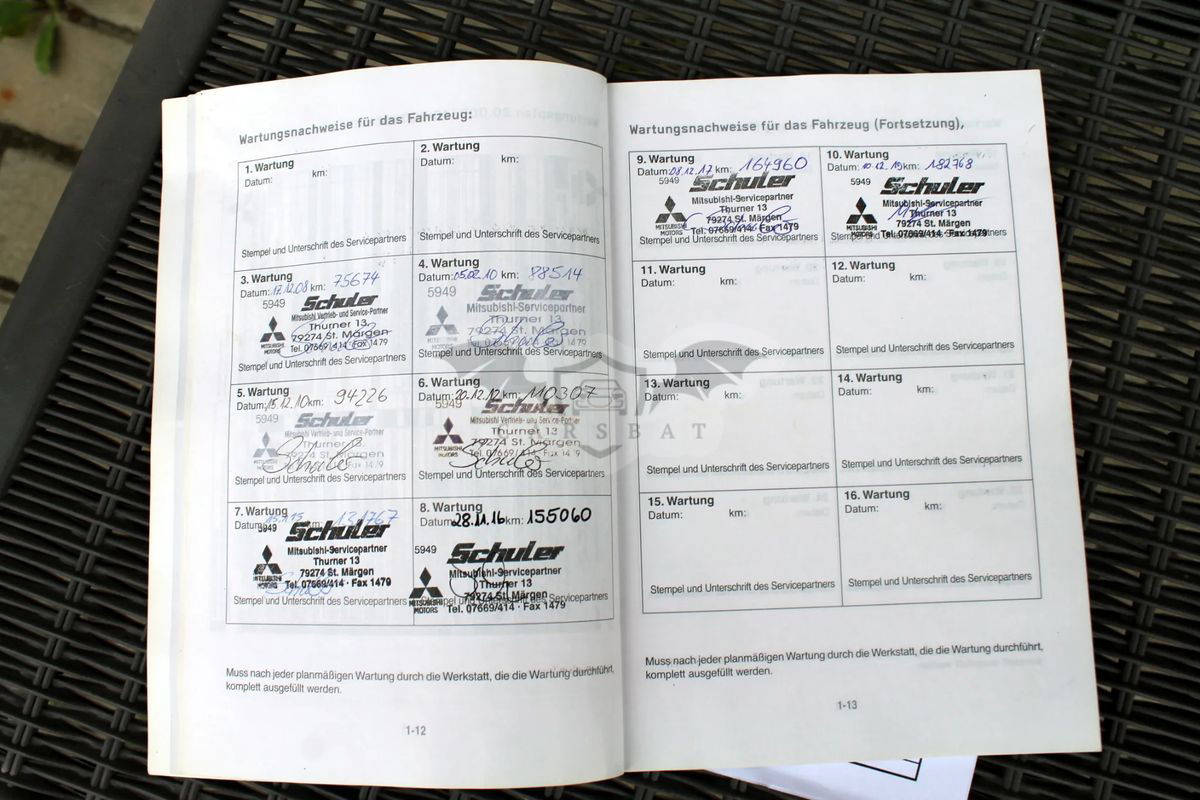 Wartungsnachweise für das Fahrzeug:
1. Wartung
Datum: km:
Stempel und Unterschrift des Servicepartners
2. Wartung
Datum: km:
Stempel und Unterschrift des Servicepartners
3. Wartung
Datum: 17.12.08 km: 75674
5949 Schuler
Mitsubishi Vertrieb- und Service-Partner
Thurner 13
79274 St. Märgen
Tel. 07669/414 Fax 1479
MITSUBISHI
MOTORS
Stempel und Unterschrift des Servicepartners
4. Wartung
Datum: 05.02.10 km: 88514
5949 Schuler
Mitsubishi-Servicepartner
Thurner 13
79274 St. Märgen
Tel. 07669/414 Fax 1479
MITSUBISHI
MOTORS
Stempel und Unterschrift des Servicepartners
5. Wartung
Datum: 15.12.10 km: 94226
5949 Schuler
Mitsubishi Vertrieb- und Service-Partner
Thurner 13
79274 St. Märgen
Tel. 07669/414 Fax 1479
MITSUBISHI
MOTORS
Schuler
Stempel und Unterschrift des Servicepartners
6. Wartung
Datum: 20.12.12 km: 110307
5949 Schuler
Mitsubishi Vertrieb- und Service-Partner
Thurner 13
79274 St. Märgen
Tel. 07669/414 Fax 1479
MITSUBISHI
MOTORS
Schuler
Stempel und Unterschrift des Servicepartners
7. Wartung
Datum: km:
5949 Schuler
Mitsubishi-Servicepartner
Thurner 13
79274 St. Märgen
Tel. 07669/414 · Fax 1479
MITSUBISHI
MOTORS
Stempel und Unterschrift des Servicepartners
8. Wartung
Datum: 28.11.16 km: 155060
5949 Schuler
Mitsubishi-Servicepartner
Thurner 13
79274 St. Märgen
Tel. 07669/414 · Fax 1479
MITSUBISHI
MOTORS
Stempel und Unterschrift des Servicepartners
Muss nach jeder planmäßigen Wartung durch die Werkstatt, die die Wartung durchführt,
komplett ausgefüllt werden.
1-12
Wartungsnachweise für das Fahrzeug (Fortsetzung),
9. Wartung
Datum: 08.12.17 km: 164960
5949 Schuler
Mitsubishi-Servicepartner
Thurner 13
79274 St. Märgen
Tel. 07669/414 · Fax 1479
MITSUBISHI
MOTORS
Stempel und Unterschrift des Servicepartners
10. Wartung
Datum: 10.12.19 km: 182768
5949 Schuler
Mitsubishi-Servicepartner
Thurner 13
79274 St. Märgen
Tel. 07669/414 · Fax 1479
MITSUBISHI
MOTORS
Stempel und Unterschrift des Servicepartners
11. Wartung
Datum: km:
Stempel und Unterschrift des Servicepartners
12. Wartung
Datum: km:
Stempel und Unterschrift des Servicepartners
13. Wartung
Datum: km:
Stempel und Unterschrift des Servicepartners
14. Wartung
Datum: km:
Stempel und Unterschrift des Servicepartners
15. Wartung
Datum: km:
Stempel und Unterschrift des Servicepartners
16. Wartung
Datum: km:
Stempel und Unterschrift des Servicepartners
Muss nach jeder planmäßigen Wartung durch die Werkstatt, die die Wartung durchführt,
komplett ausgefüllt werden.
1-13